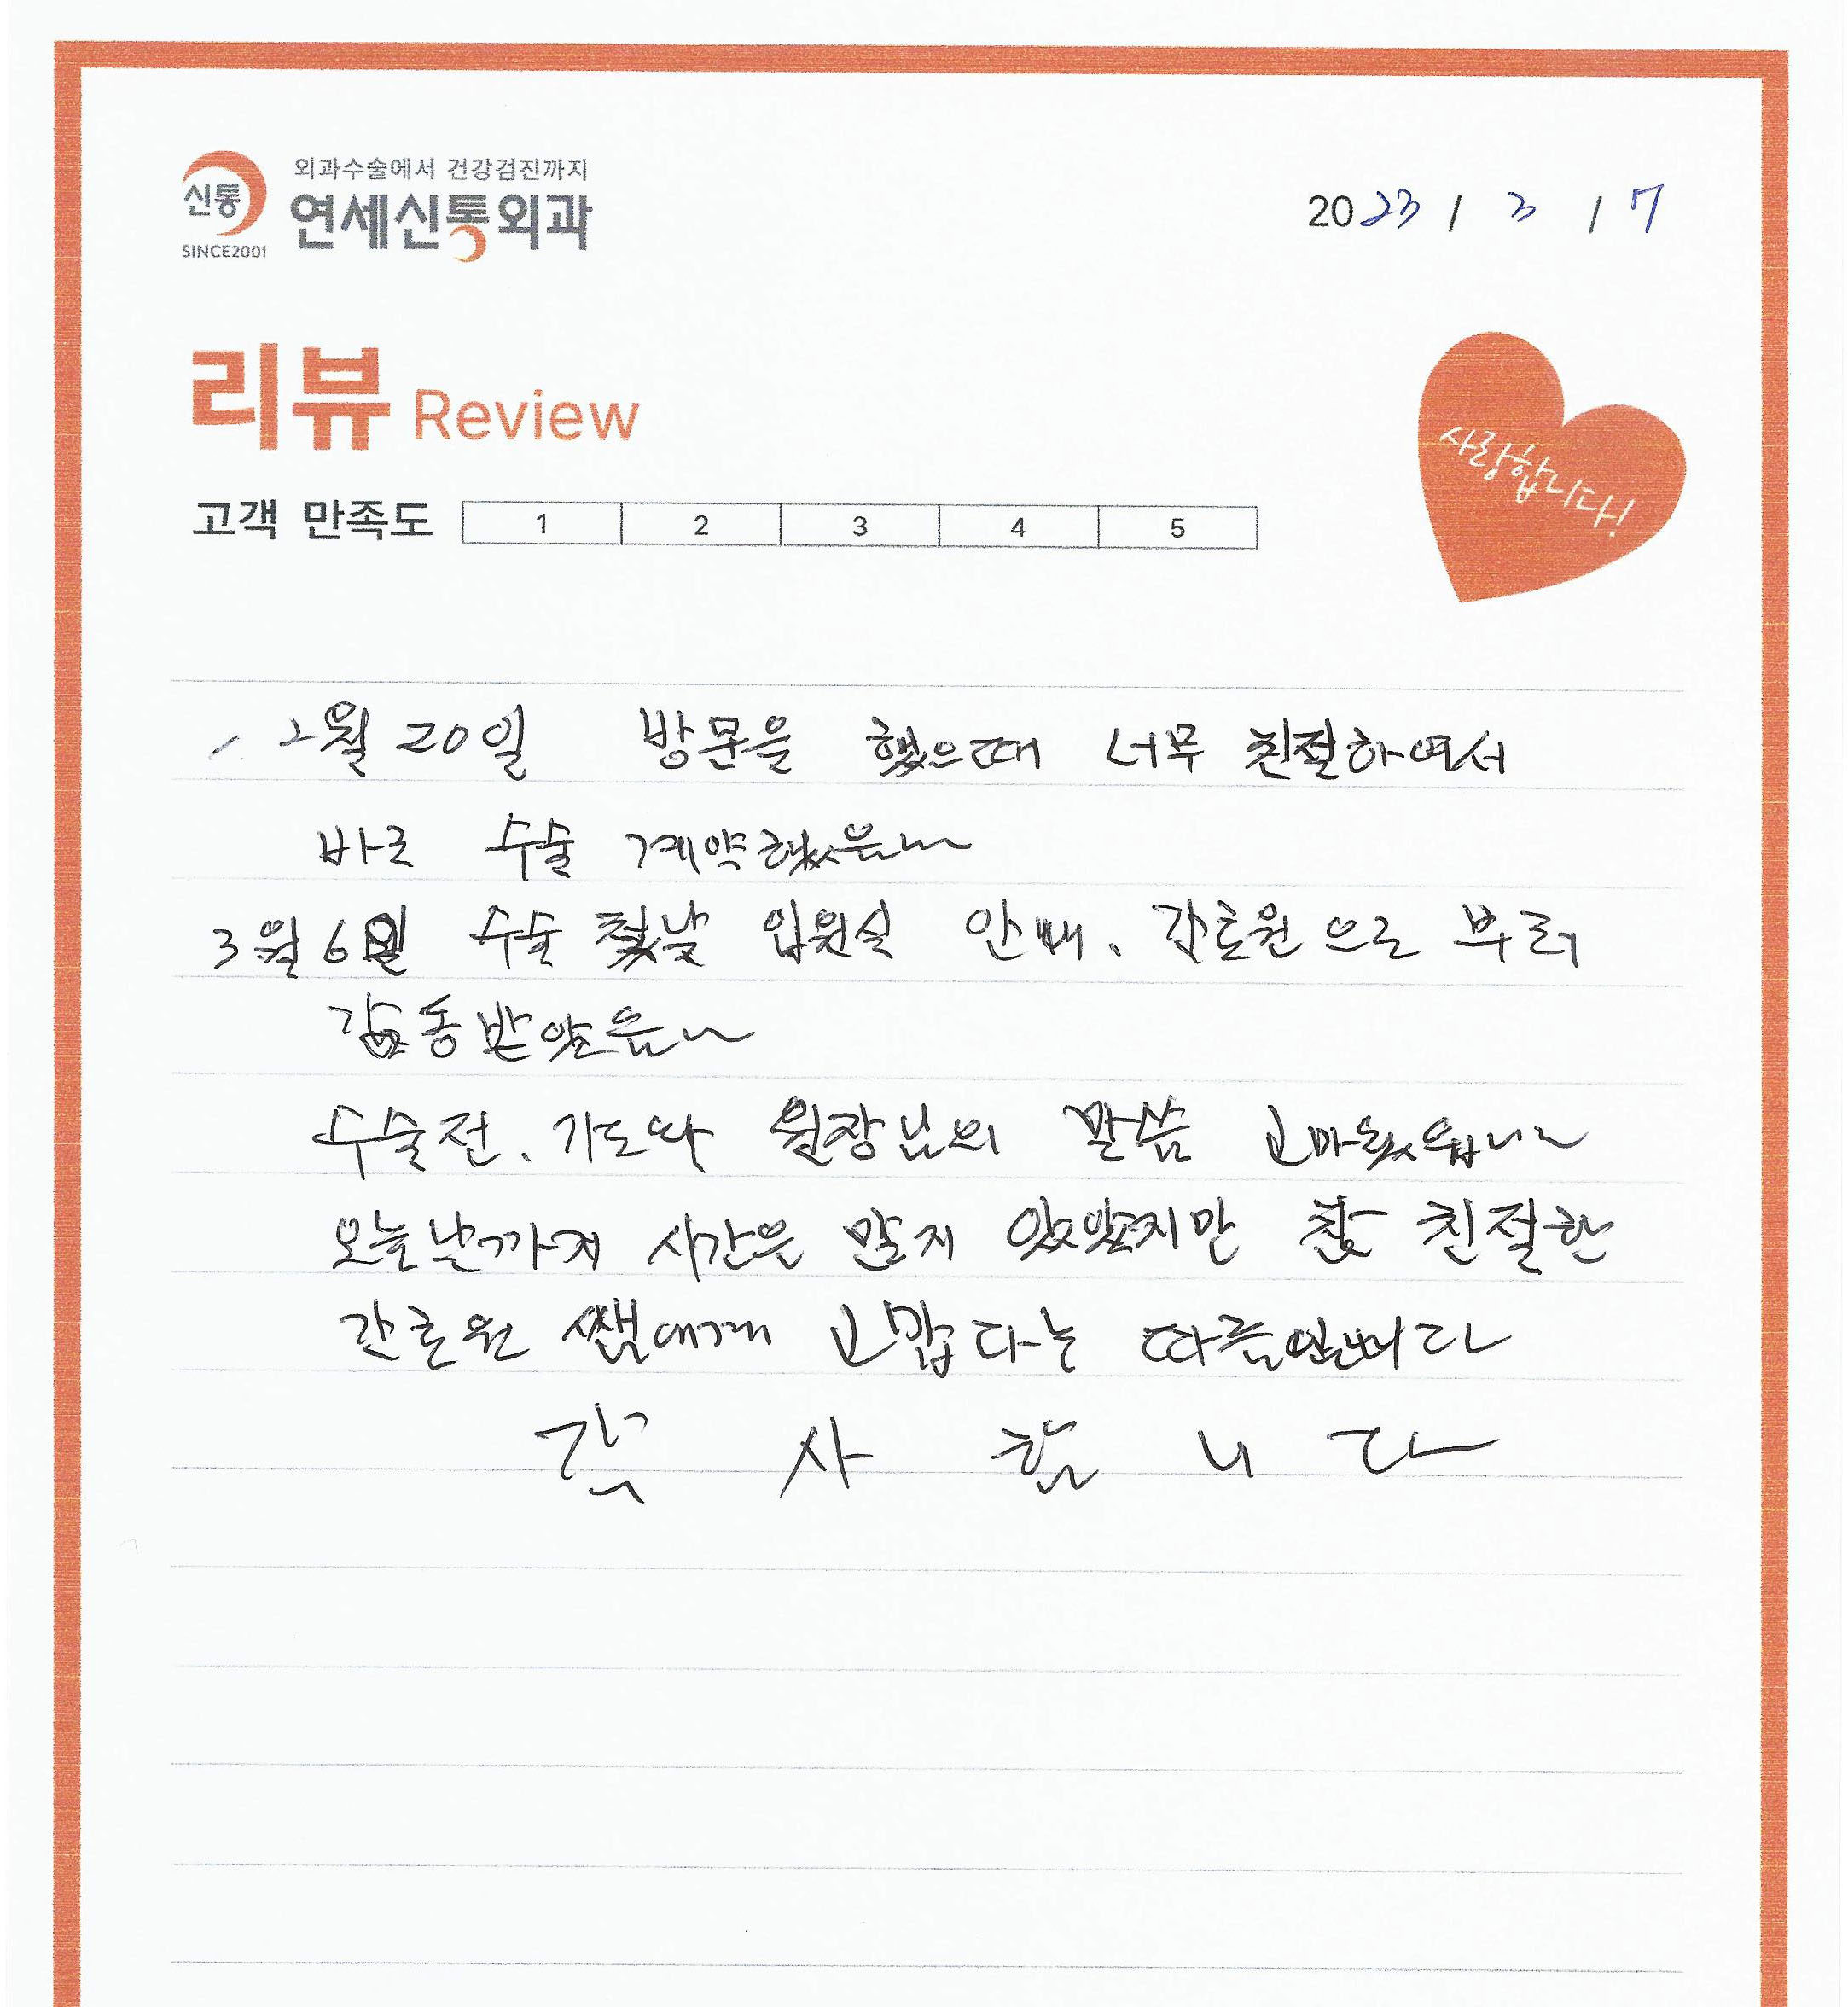 외과수술에서 건강검진까지
신통
연세신통외과
SINCE2001
2023 / 3 / 7
리뷰 Review
사랑합니다!
고객 만족도 1 2 3 4 5
2월 20일 방문을 했으때 너무 친절하여서
바로 수술 계약했음~
3월 6일 수술 첫날 입원실 안내, 간호원으로 부터
감동받았음~
수술전, 기도와 원장님의 말씀 고마웠읍니~
오늘날까지 시간은 말지 있었지만 참 친절한
간호원 쌤에게 고맙다는 따름입니다
감 사 합 니 다